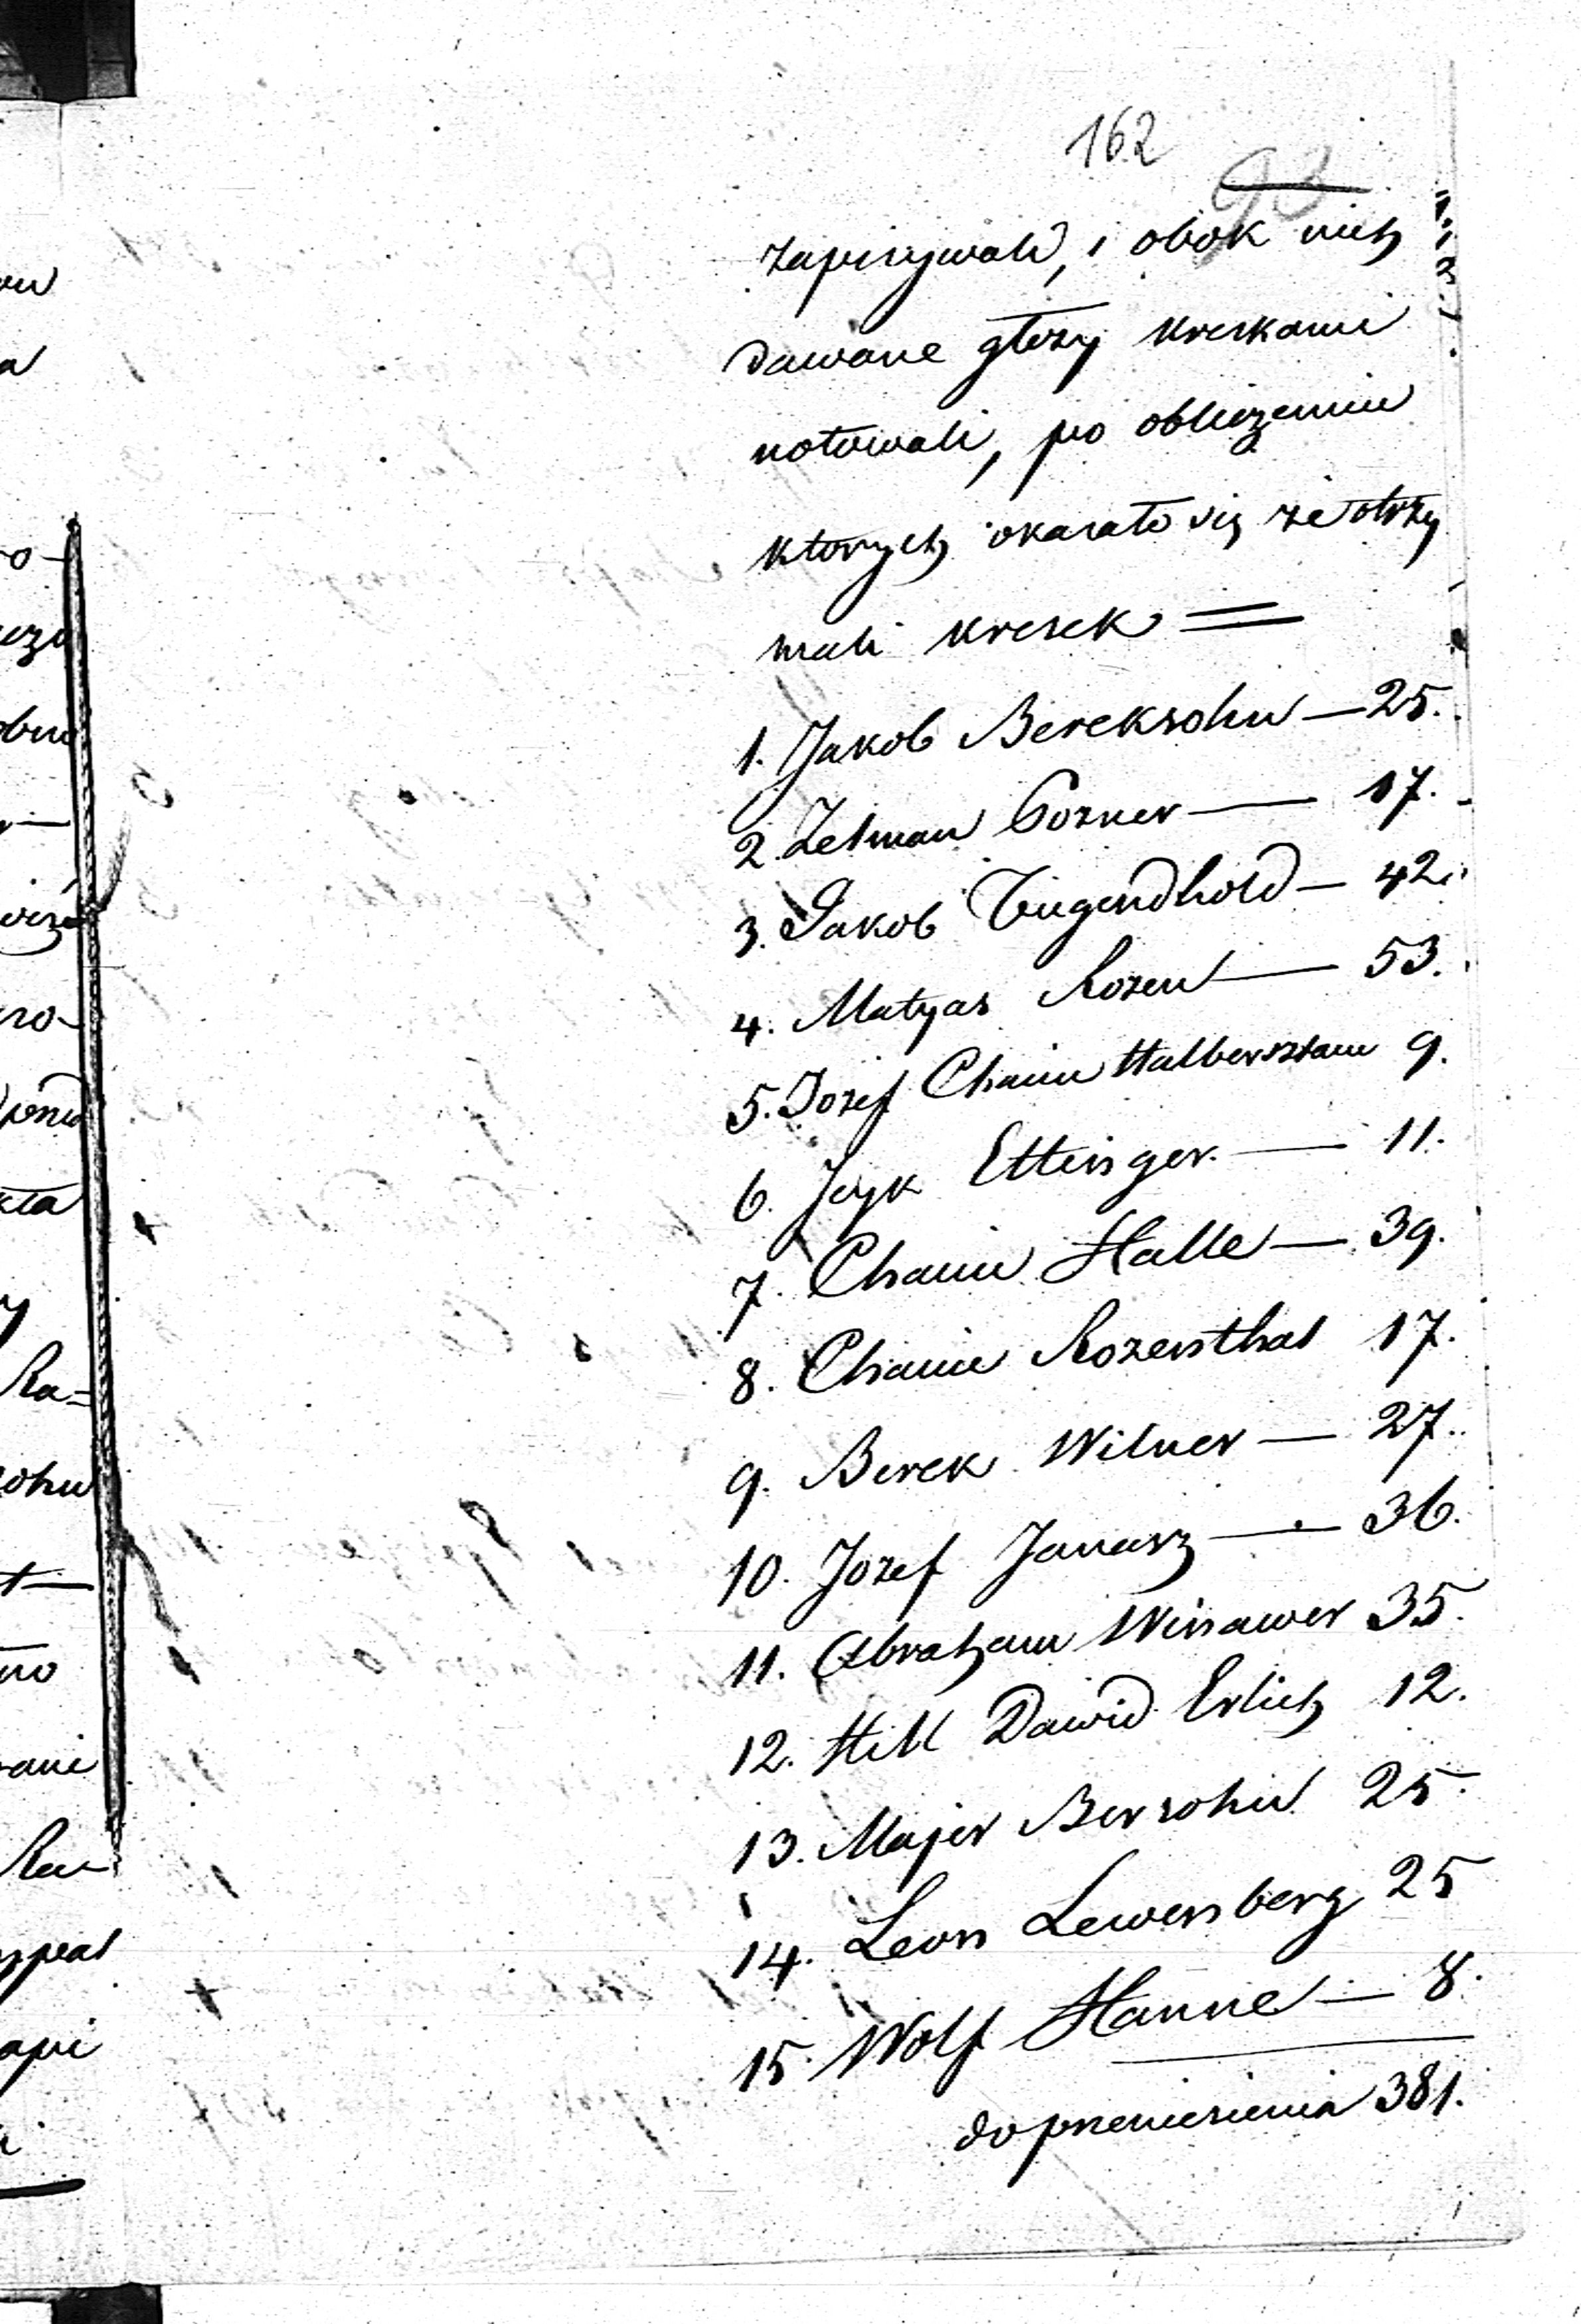 162
93
zapisywali, i obok nich
dawane głosy kreskami
notowali, po obliczeniu
ktorych okazało się że otrzy
mali kresek =
1. Jakob Bereksohn — 25.
2. Zelman Pozner — 17.
3. Jakob Tugendhold — 42.
4. Matyas Rozen — 53.
5. Jozef Chaim Halbersztam 9.
6. Icyk Ettinger. — 11.
7. Chaim Halle — 39.
8. Chaim Rozenthal 17.
9. Berek Wilner — 27.
10. Jozef Janasz — 36.
11. Abraham Winawer 35.
12. Hill Dawid Erlich 12.
13. Majer Bersohn 25.
14. Leon Lewenberg 25
15. Wolf Hanne — 8.
do przeniesienia 381.